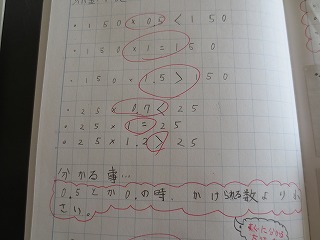 ・150×0.5<150
・150×1=150
・150×1.5>150
・25×0.7<25
・25×1=25
・25×1.2>25
分かる事…
0.5とか0.の時、かけられる数より
さい。